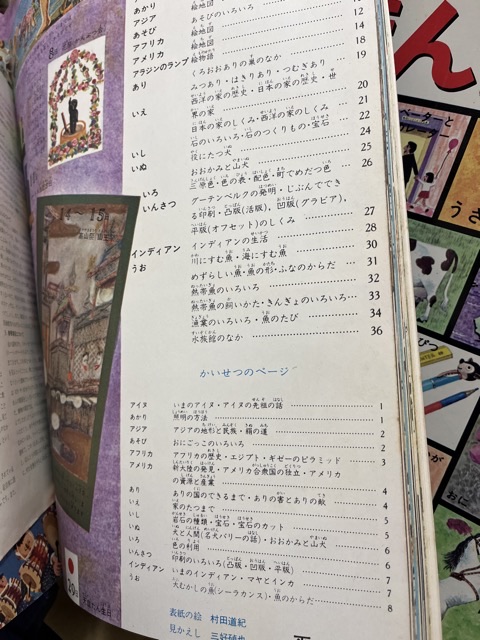 あかり
アジア 絵地図
あそび あそびのいろいろ
アフリカ 絵地図 12
アメリカ 絵地図 14
アラジンのランプ 絵物語 18
あり くろおおありの巣のなか
みつあり・はきりあり・つむぎあり 19
いえ 西洋の家の歴史・日本の家の歴史・世
界の家 20
日本の家のしくみ・西洋の家のしくみ 21
いし 石のいろいろ・石のつくりもの・宝石 22
いぬ 役にたつ犬 24
おおかみと山犬 25
いろ 三原色・色の表・配色・町でめだつ色 26
いんさつ グーテンベルクの発明・じぶんででき
る印刷・凸版(活版)、凹版(グラビア)、
平版(オフセット)のしくみ 27
インディアン インディアンの生活 28
うお 川にすむ魚・海にすむ魚 30
めずらしい魚・魚の形・ふなのからだ 31
熱帯魚のいろいろ 32
熱帯魚の飼いかた・きんぎょのいろいろ 33
漁業のいろいろ・魚のたび 34
水族館のなか 36
かいせつのページ
アイヌ いまのアイヌ・アイヌの先祖の話 1
あかり 照明の方法 1
アジア アジアの地形と民族・絹の道 2
あそび おにごっこのいろいろ 2
アフリカ アフリカの歴史・エジプト・ギゼーのピラミッド 3
アメリカ 新大陸の発見・アメリカ合衆国の独立・アメリカ
の資源と産業 4
あり ありの国のできるまで・ありの害とありの敵 4
いえ 家のたつまで 5
いし 岩石の種類・宝石・宝石のカット 5
いぬ 犬と人間(名犬バリーの話)・おおかみと山犬 6
いろ 色の利用 6
いんさつ 印刷のいろいろ(凸版・凹版・平版) 7
インディアン いまのインディアン・マヤとインカ 7
うお 大むかしの魚(シーラカンス)・魚のからだ 8
表紙の絵 村田道紀
見かえし 三好碩也
14〜15